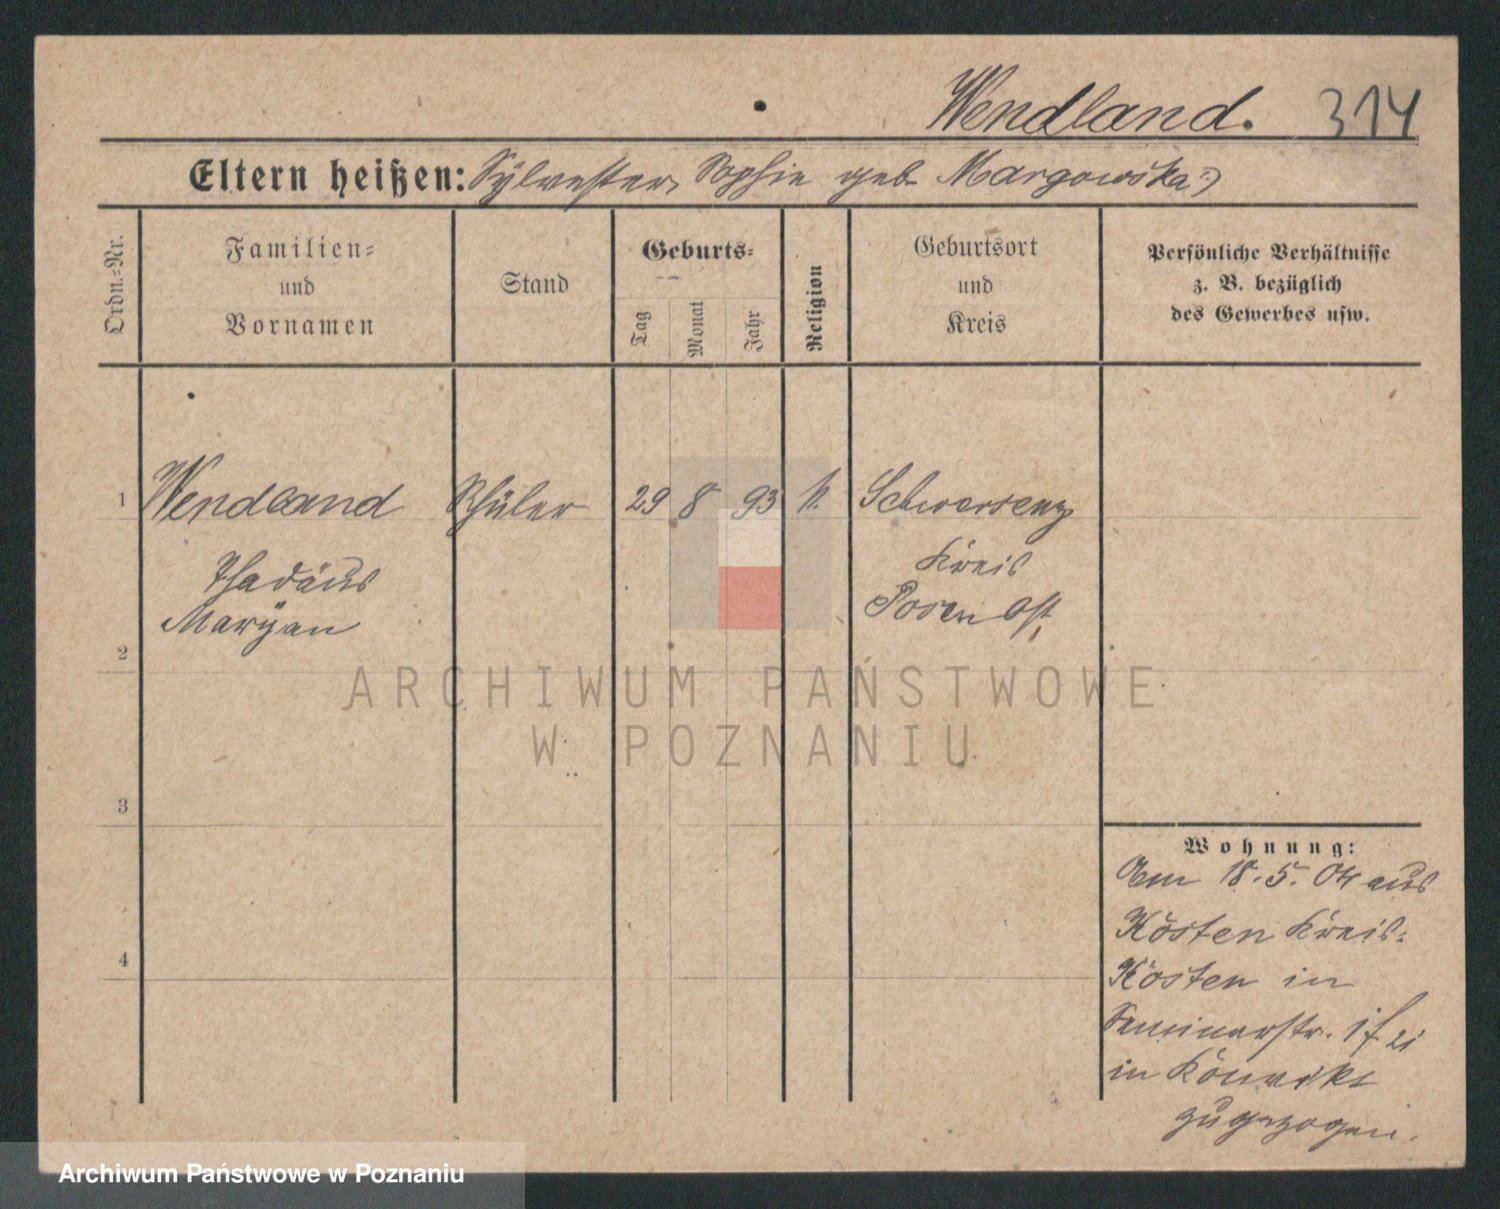 Wendland. 314
Eltern heißen: Sylvester, Sophie geb. Margowska
Ordn.-Nr.
Familien-
und
Vornamen
Stand
Geburts-
Tag
Monat
Jahr
Religion
Geburtsort
und
Kreis
Persönliche Verhältnisse
z. B. bezüglich
des Gewerbes usw.
1 Wendland Schüler 29 8 93 k. Schwersenz
Thadäus Kreis
Maryan Posen Ost
2
3
4
ARCHIWUM PAŃSTWOWE
W POZNANIU
Wohnung:
Am 18.5.04 aus
Kosten Kreis-
Kosten in
Seminarstr.
in Konvikt
zugezogen.
Archiwum Państwowe w Poznaniu